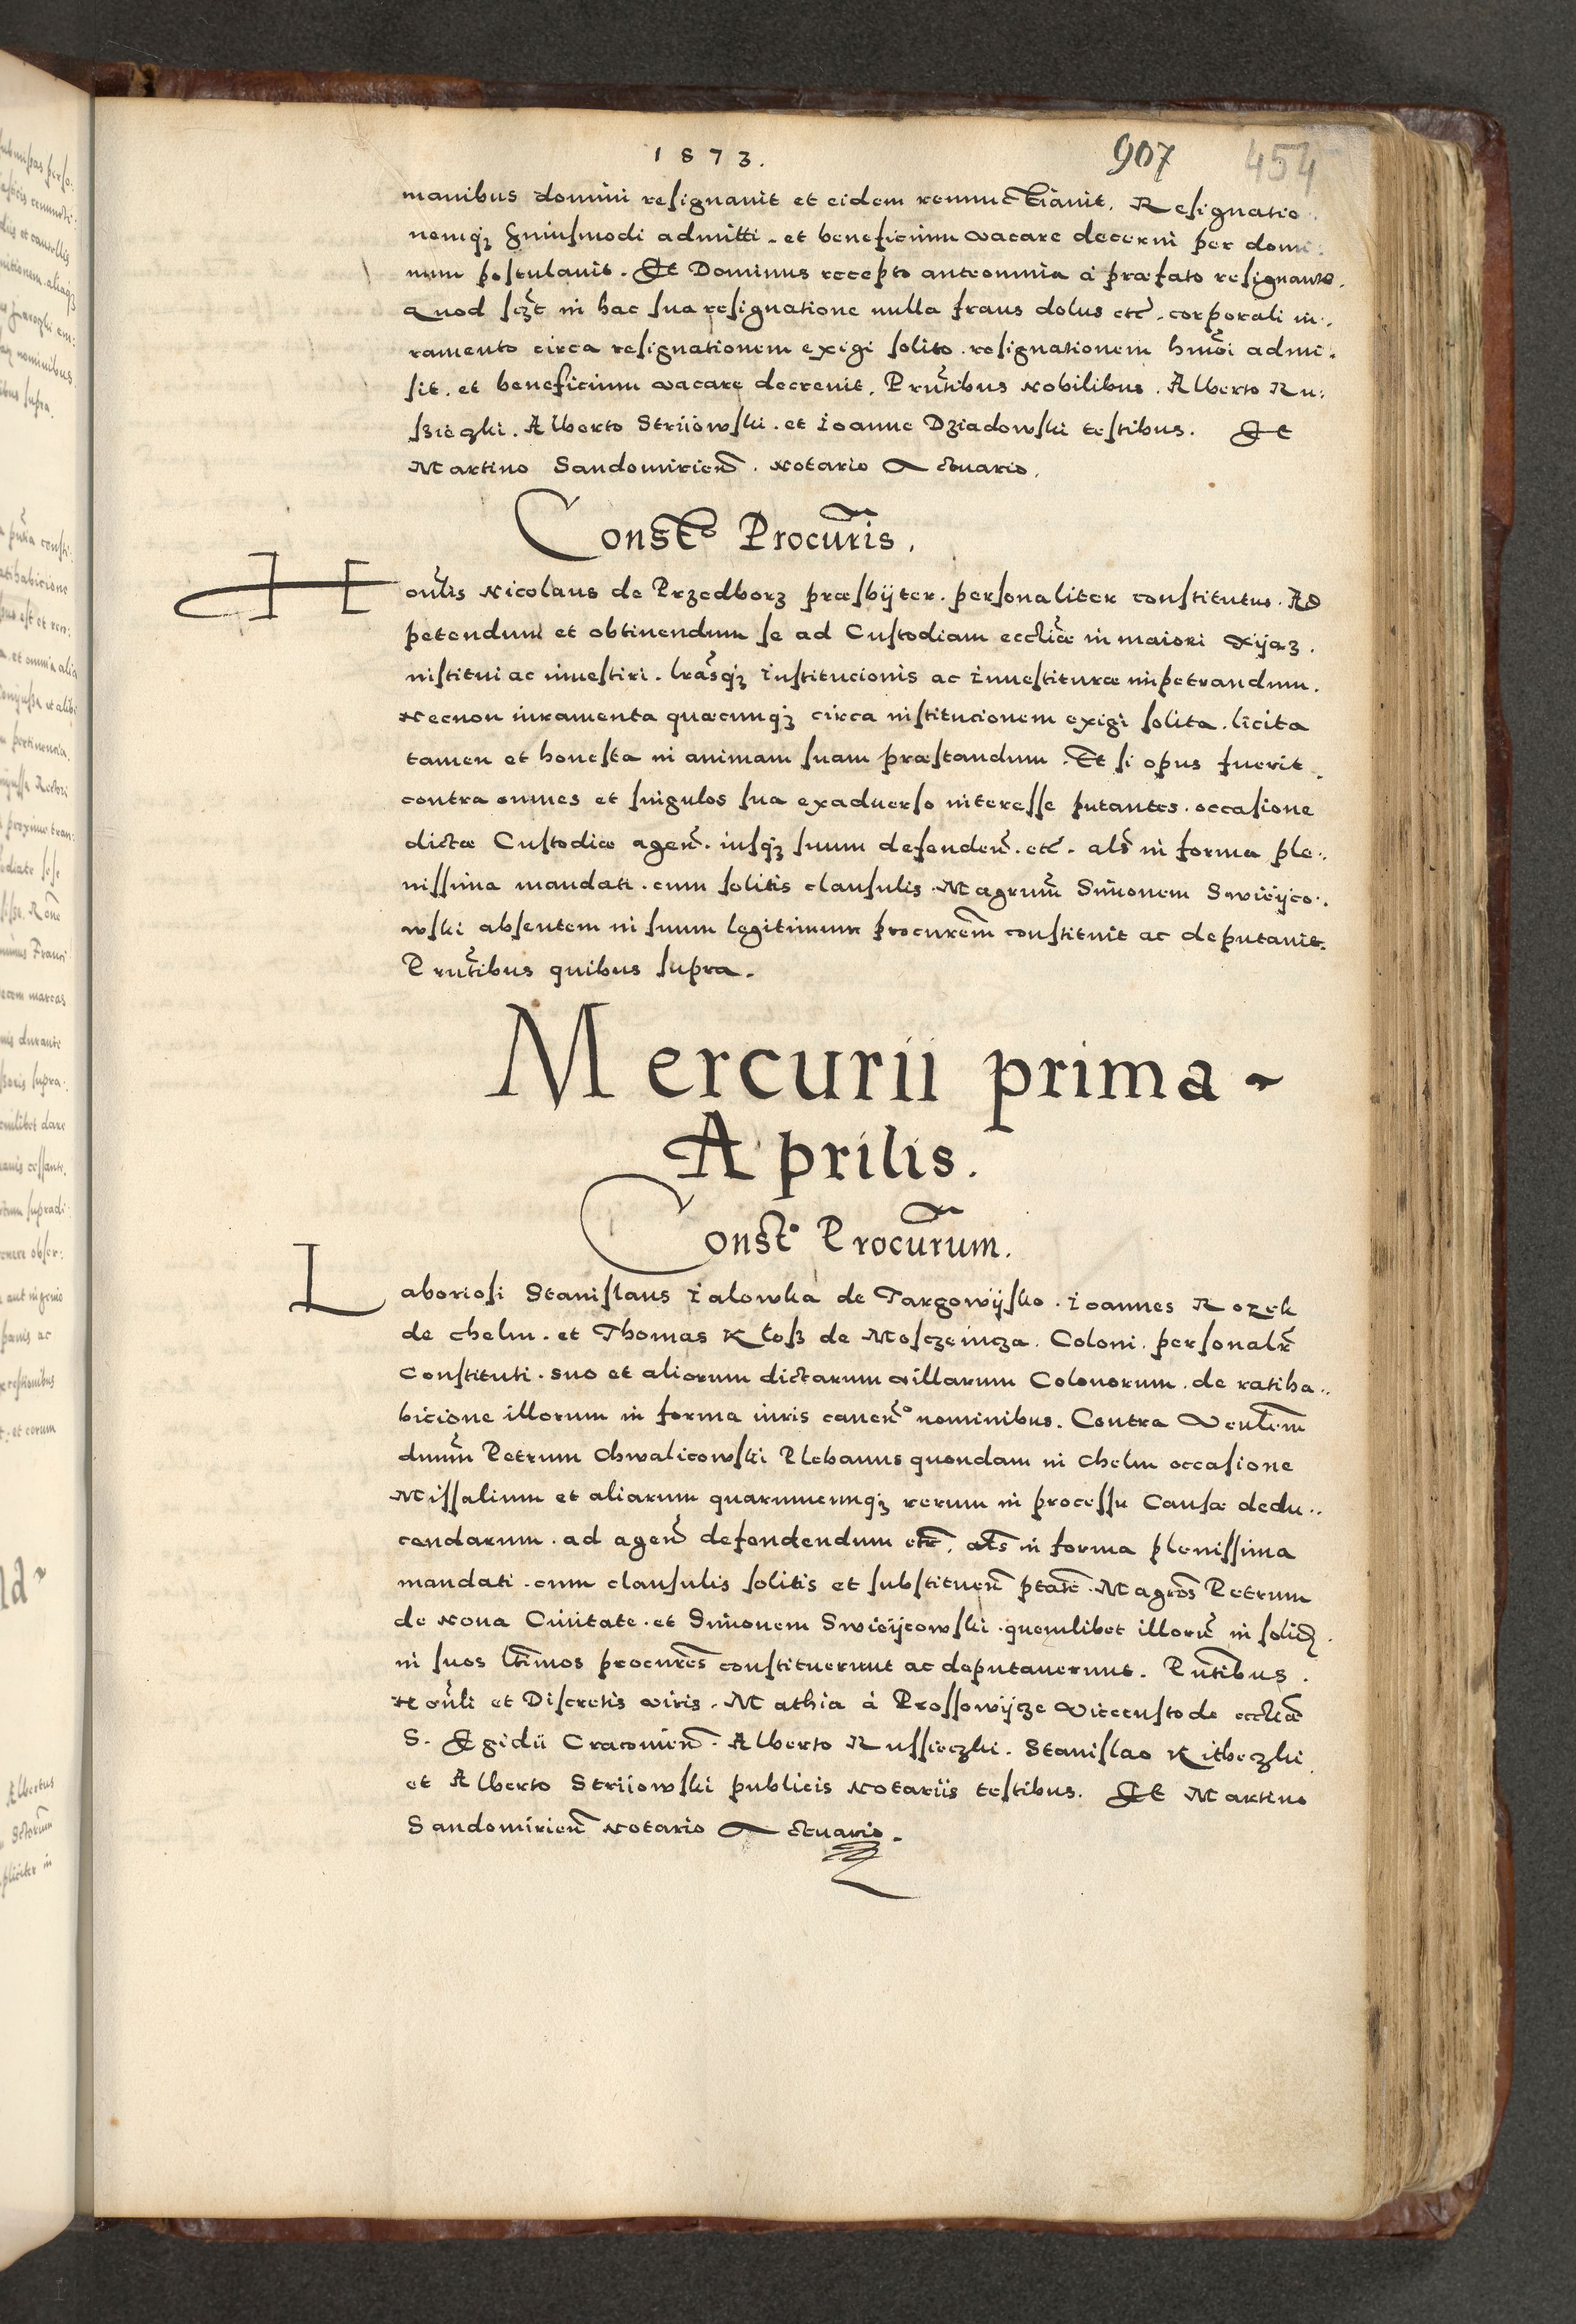 1573.
907 454
manibus domini resignauit et eidem renunctiauit. Resignatio
nemq₃ huiusmodi admitti. et beneficium vacare decerni per domi:
num postulauit. Et Dominus recepto anteomnia à præfato resignante.
Quod sczt in hac sua resignatione nulla fraus dolus etc. corporali iu:
ramento circa resignationem exigi solito. resignationem hmōi admi:
sit. et beneficium vacare decreuit. Prūtibus Nobilibus. Alberto Ru:
ßieczki. Alberto Striiowski. et Ioanne Dziadowski testibus. Et
Martino Sandomirieñ. Notario Actuario.
Constᵒ Procūris.
Honlis Nicolaus de Przedborz præsbÿter. personaliter constitutus. Ad
petendum et obtinendum se ad Custodiam eccliæ in maiori Xijąz.
institui ac inuestiri. lrāsq₃ Institucionis ac Inuestituræ impetrandum.
Necnon iuramenta quæcunq₃ circa institucionem exigi solita. licita
tamen et honesta in animam suam præstandum. Et si opus fuerit.
contra omnes et singulos sua exaduerso interesse putantes. occasione
dictæ Custodiæ ageñ. iusq₃ suum defendeñ. etc. als in forma ple:
nissima mandati. cum solitis clausulis. Magrum Simonem Swiëÿco:
wski absentem in suum legitimum procurem̄ constituit ac deputauit.
Prūtibus quibus supra.
Mercurii prima
Aprilis.
Constᵒ Procūrum.
Laboriosi Stanislaus Ialowka de Targowÿsko. Ioannes Rozek
de chelm. et Thomas Kłoß de Mosczenicza. Coloni. personalr̄
Constituti. suo et aliorum dictarum villarum Colonorum. de ratiha:
bicione illorum in forma iuris caueñᵒ nominibus. Contra Venlem̄
dnum̄ Petrum Chwalicowski Plebanus quondam in Chelm occasione
Missalium et aliarum quarumcunq₃ rerum in processu Causæ dedu:
cendarum. ad ageñ defendendum etc. als in forma plenissima
mandati. cum clausulis solitis et substitueñ ptatē. Magros Petrum
de Noua Ciuitate. et Simonem Swiëÿcowski. quemlibet illorū in solid.
in suos ltimos procurēs constituerunt ac deputauerunt. Pūtibus.
Honli et Discretis viris. Mathia à Prossowÿcze Vicecustode eccliæ
S. Egidii Cracouieñ. Alberto Russieczki. Stanislao Kitheczki
et Alberto Striiowski publicis Notariis testibus. Et Martino
Sandomirieñ Notario Actuario.